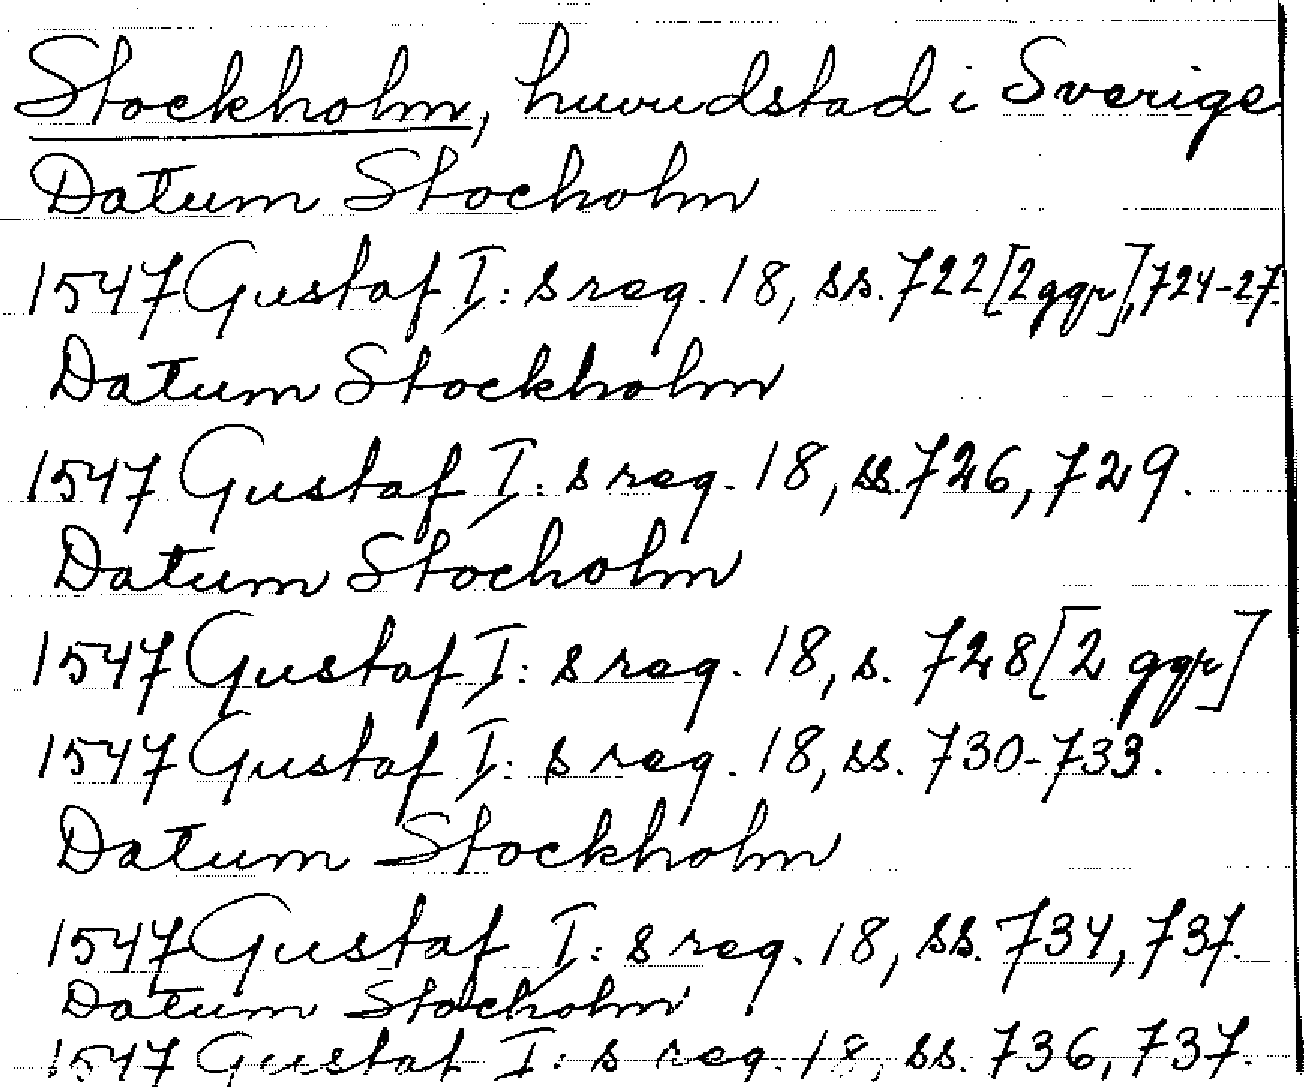 Stockholm, huvudstad i Sverige
Datum Stocholm
1547 Gustaf I: s reg. 18, ss. 722 [2 ggr], 724-27.
Datum Stockholm
1547 Gustaf I: s reg. 18, ss. 726, 729.
Datum Stocholm
1547 Gustaf I: s reg. 18, s. 728 [2 ggr]
1547 Gustaf I: s reg. 18, ss. 730-733.
Datum Stockholm
1547 Gustaf I: s reg. 18, ss. 734, 737.
Datum Stocholm
1547 Gustaf I: s reg. 18, ss. 736, 737.